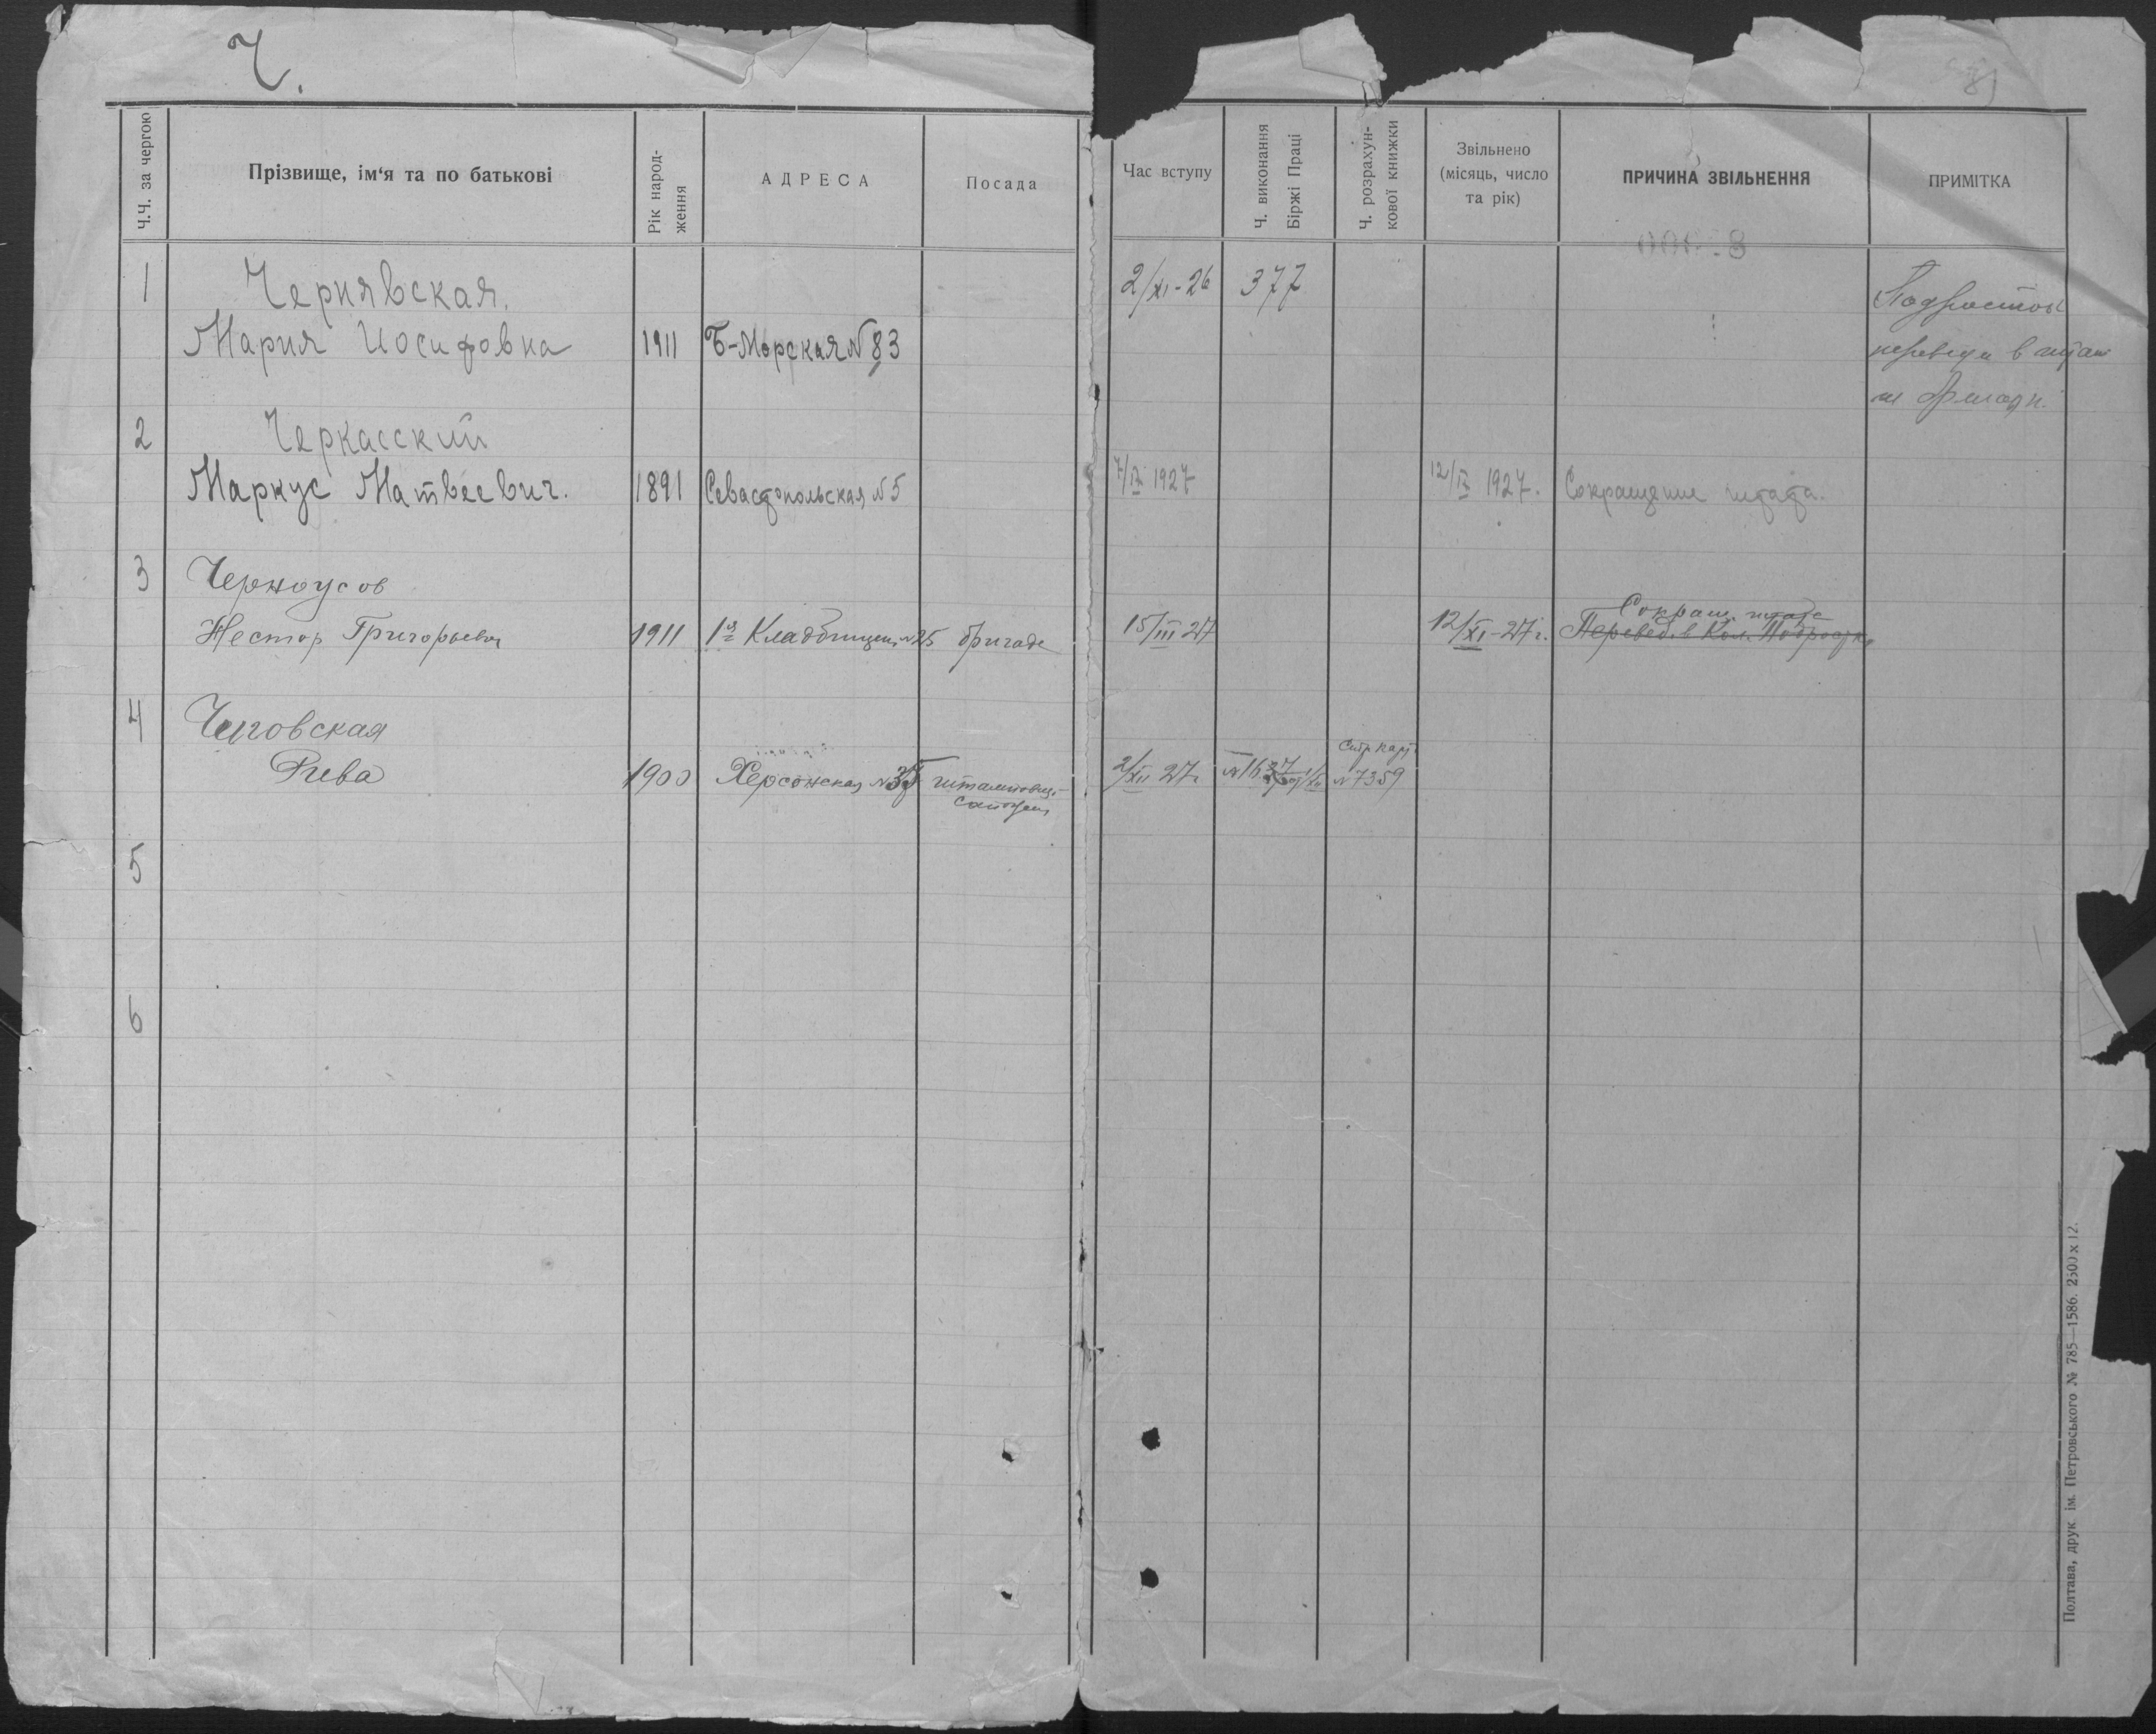 Ч.
81
Ч.Ч. за чергою
Прізвище, ім'я та по батькові
Рік народ-
ження
АДРЕСА
Посада
Час вступу
Ч. виконання
Біржі Праці
Ч. розрахун-
кової книжки
Звільнено
(місяць, число
та рік)
ПРИЧИНА ЗВІЛЬНЕННЯ
ПРИМІТКА
1 Чернявская. 2/XI-26 377 Подросток
Мария Иосифовна 1911 Б-Морская N 83 в штат
2 Черкасский
Маркус Матвеевич. 1891 Севастопольская N 5 7/IX 1927 12/IX 1927. Сокращение штата.
3 Черноусов
Сокращ. штата
Нестор Григорьевич 1911 1я Кладбищен N 25 бригаде 15/III 27 12/XI-27 г. Перевед. в Кол. Подростк
4 Чеговская
Рива 1900 Херсонская N 35 2/XII 27 г. N 7359
5
6
Полтава, друк. ім. Петровського № 785—1586. 2500 x 12.